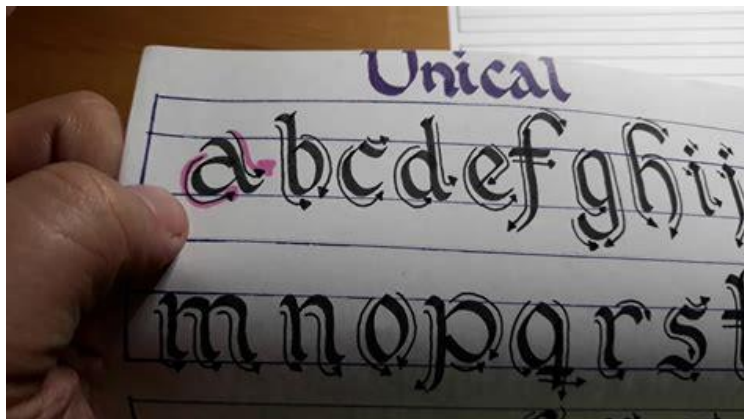 Unical
a b c d e f g h i j
m n o p q r s t